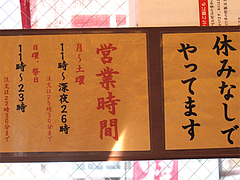 休みなしで
やってます
営業時間
月〜土曜
11時〜深夜26時
注文は25時30分まで
日曜、祭日
11時〜23時
注文は22時30分まで